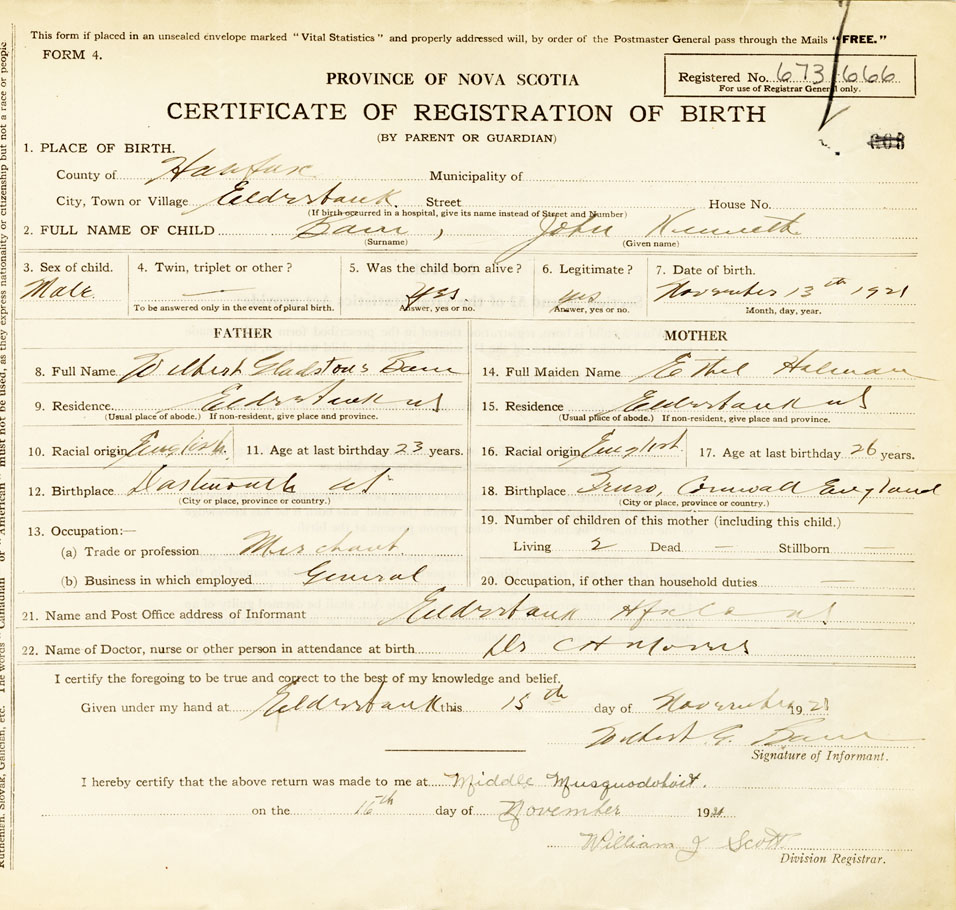 This form if placed in an unsealed envelope marked "Vital Statistics" and properly addressed will, by order of the Postmaster General pass through the Mails "FREE."
FORM 4.
PROVINCE OF NOVA SCOTIA
Registered No. 673666
For use of Registrar General only.
CERTIFICATE OF REGISTRATION OF BIRTH
(BY PARENT OR GUARDIAN)
1. PLACE OF BIRTH.
County of Halifax Municipality of
City, Town or Village Elderbank Street House No.
(If birth occurred in a hospital, give its name instead of Street and Number)
2. FULL NAME OF CHILD , John Kenneth
(Surname) (Given name)
3. Sex of child. 4. Twin, triplet or other? 5. Was the child born alive? 6. Legitimate? 7. Date of birth.
Male — yes yes November 13th 1921
To be answered only in the event of plural birth. Answer, yes or no. Answer, yes or no. Month, day, year.
FATHER MOTHER
8. Full Name Wilbert Gladstone 14. Full Maiden Name Ethel Holman
9. Residence Elderbank NS 15. Residence Elderbank NS
(Usual place of abode.) If non-resident, give place and province. (Usual place of abode.) If non-resident, give place and province.
10. Racial origin English 11. Age at last birthday 23 years. 16. Racial origin English 17. Age at last birthday 26 years.
12. Birthplace Dartmouth NS 18. Birthplace Truro, Cornwall England
(City or place, province or country.) (City or place, province or country.)
13. Occupation:— 19. Number of children of this mother (including this child.)
(a) Trade or profession Merchant Living 2 Dead — Stillborn —
(b) Business in which employed General 20. Occupation, if other than household duties —
21. Name and Post Office address of Informant Elderbank Hfx Co NS
22. Name of Doctor, nurse or other person in attendance at birth Dr C H Morris
I certify the foregoing to be true and correct to the best of my knowledge and belief.
Given under my hand at Elderbank this 15th day of November 1921
Wilbert G.
Signature of Informant.
I hereby certify that the above return was made to me at Middle Musquodoboit.
on the 16th day of November 1921
William J Scott
Division Registrar.
Ruthenian, Slovak, Galician, etc. The words "Canadian" or "American" must not be used, as they express nationality or citizenship but not a race or people